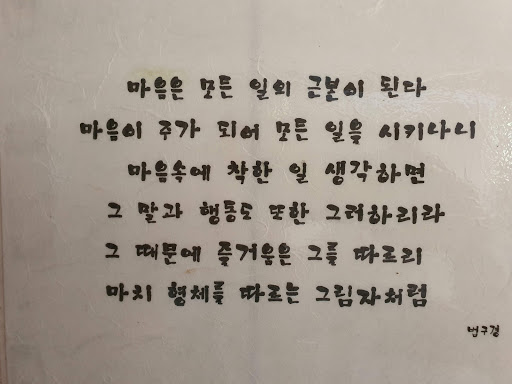 마음은 모든 일의 근본이 된다
마음이 주가 되어 모든 일을 시키나니
마음속에 착한 일 생각하면
그 말과 행동도 또한 그러하리라
그 때문에 즐거움은 그를 따르리
마치 형체를 따르는 그림자처럼
법구경